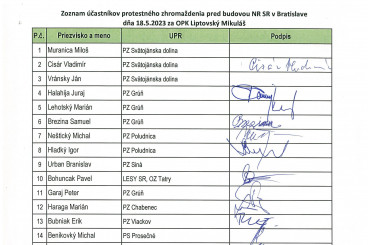 Zoznam účastníkov protestného zhromaždenia pred budovou NR SR v Bratislave
dňa 18.5.2023 za OPK Liptovský Mikuláš
P.č. Priezvisko a meno UPR Podpis
1 Muranica Miloš PZ Svätojánska dolina
2 Cisár Vladimír PZ Svätojánska dolina Cisár Vladimír
3 Vránsky Ján PZ Svätojánska dolina
4 Halahija Juraj PZ Grúň
5 Lehotský Marián PZ Grúň
6 Brezina Samuel PZ Grúň Brezina
7 Neštický Michal PZ Poludnica
8 Hladký Igor PZ Poludnica
9 Urban Branislav PZ Siná
10 Bohuncak Pavel LESY SR, OZ Tatry
11 Garaj Peter PZ Grúň
12 Haraga Marián PZ Chabenec
13 Bubniak Erik PZ Vlackov
14 Beníkovký Michal PS Prosečné